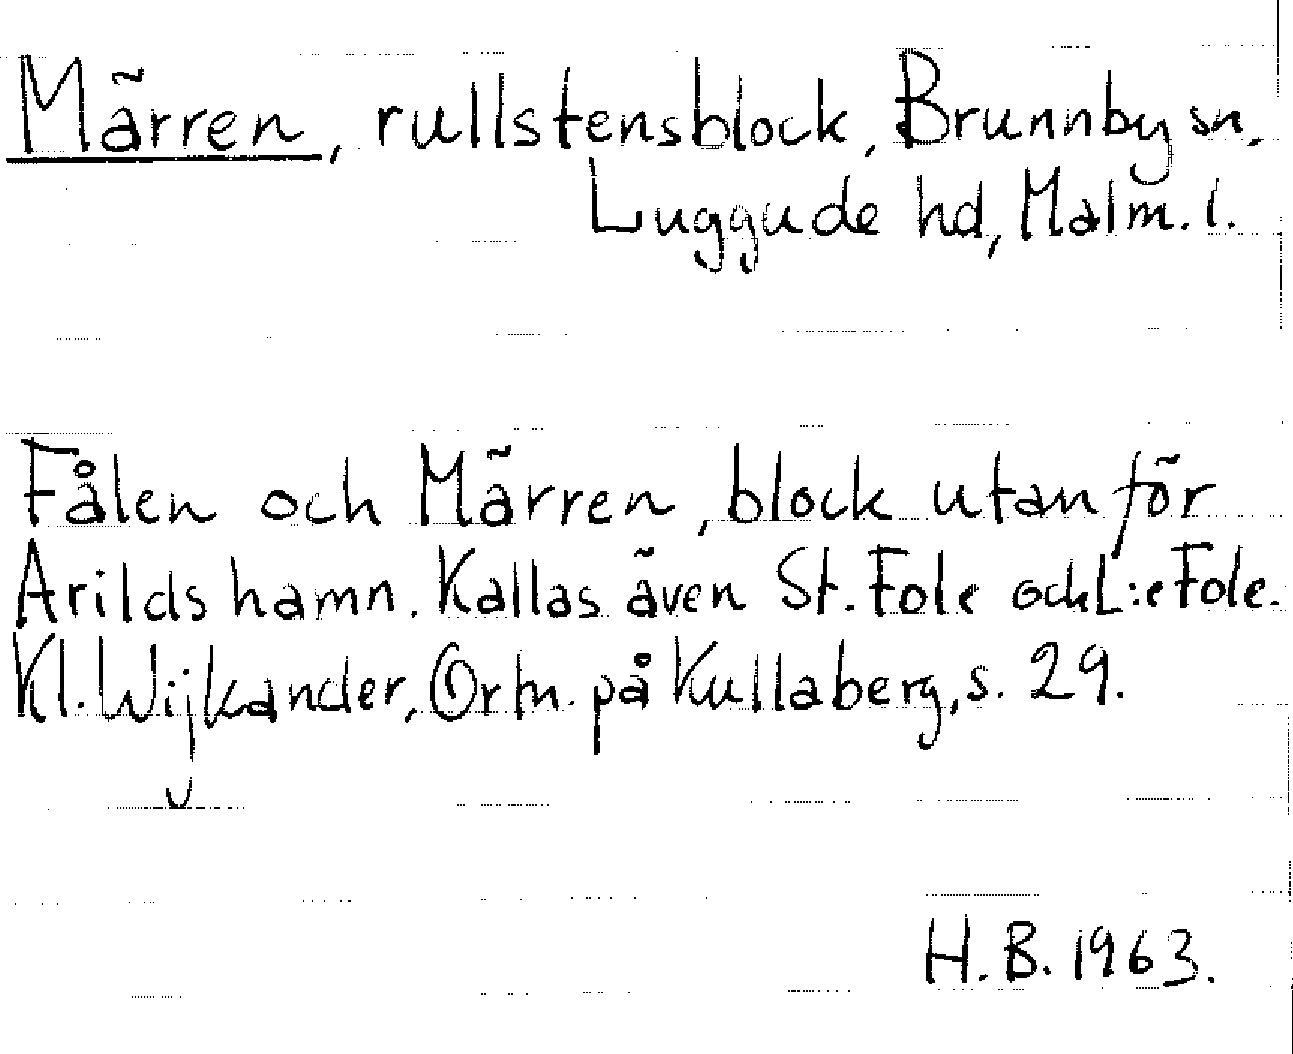 Märren, rullstensblock, Brunnby sn.
Luggude hd, Malm. l.
Fålen och Märren, block utanför
Arilds hamn. Kallas även St. Fole och L:e Fole.
Kl. Wijkander, Ortn. på Kullaberg, s. 29.
H. B. 1963.